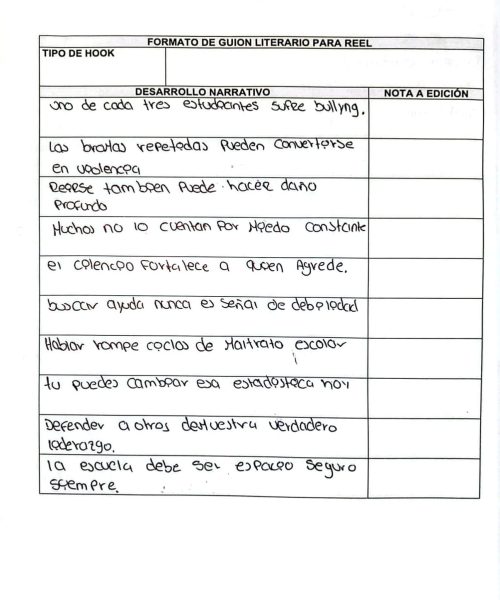 FORMATO DE GUION LITERARIO PARA REEL
TIPO DE HOOK
DESARROLLO NARRATIVO NOTA A EDICIÓN
uno de cada tres estudiantes sufre bullyng.
Las bromas repetidas pueden convertirse
en violencia
Reirse tambien puede hacer daño
profundo
Muchos no lo cuentan por miedo constante
el cilencio fortalece a quien Agrede.
buscar ayuda nunca es señal de debilidad
Hablar rompe ciclos de Maltrato escolar
tu puedes cambiar esa estadistica hoy
Defender a otros demuestra verdadero
liderazgo.
la escuela debe ser espacio seguro
siempre.